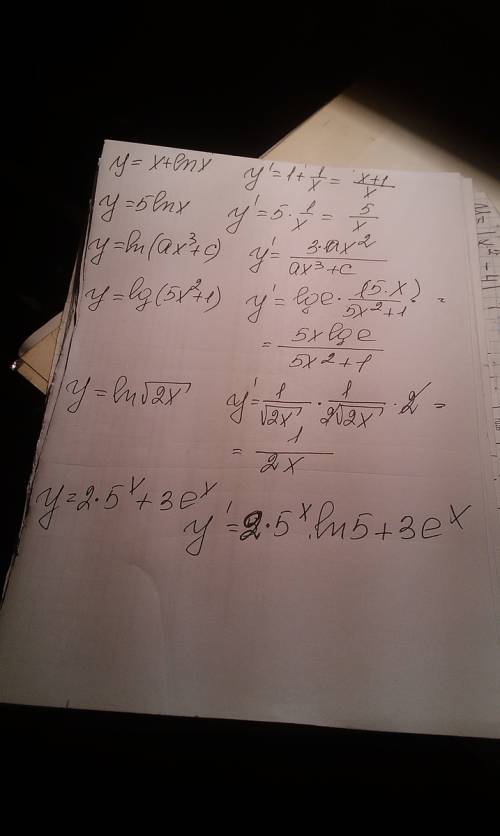 y = x+lnx y' = 1+ 1/x = x+1/x
y = 5lnx y' = 5· 1/x = 5/x
y = ln(ax³+c) y' = 3·ax²/ax³+c
y = lg(5x²+1) y' = lge · (5·x)/5x²+1 · =
= 5x lge/5x²+1
y = ln√2x y' = 1/√2x · 1/2√2x · 2 =
= 1/2x
y = 2·5ˣ + 3eˣ
y' = 2·5ˣ·ln5 + 3eˣ